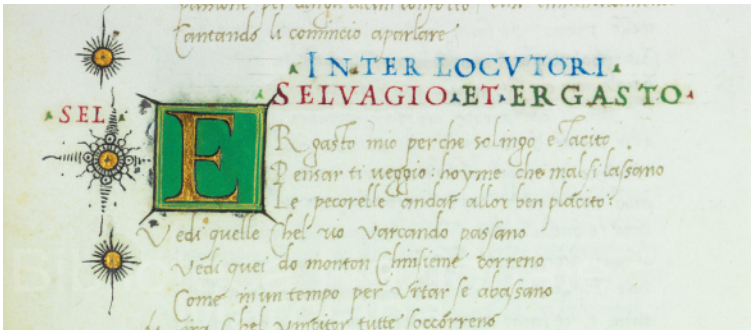 Cantando li comincio aparlare
INTERLOCVTORI
SELVAGIO ET ERGASTO
SEL
ERgasto mio perche solingo e Tacito
Pensar ti veggio: hoyme che mal si lassano
Le pecorelle andar allor ben placito:
Vedi quelle Chel rio varcando passano
Vedi quei do monton Chinsieme correno
Come in un tempo per Vrtar se abassano
Chel Vincitor tutte soccorreno